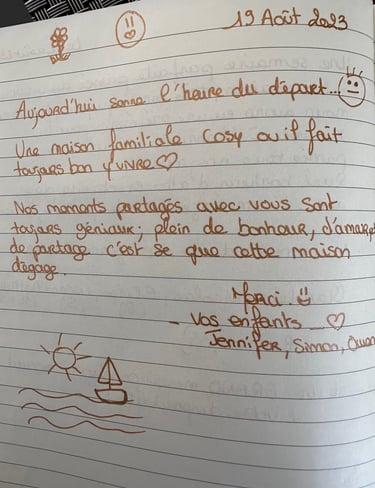 19 Août 2023
Aujourd'hui sonne l'heure du départ...
Une maison familiale cosy ou il fait
toujars bon y vivre ♡
Nos moments partagés avec vous sont
toujars géniaux; plein de bonheur, d'amour, et
de partage c'est se que cette maison
dégage.
Merci. ☺
- Vos enfants _ ♡
Jennifer, Simon,